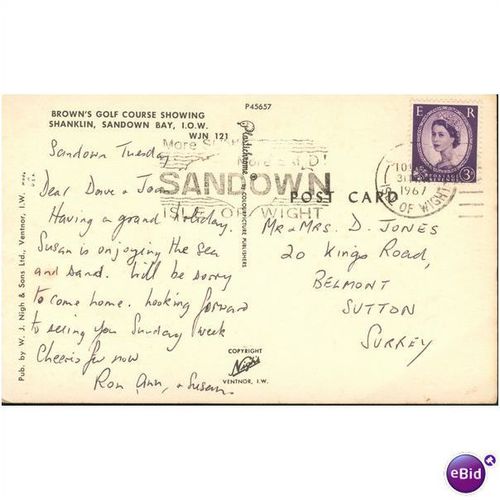 P45657
BROWN'S GOLF COURSE SHOWING
SHANKLIN, SANDOWN BAY, I.O.W.
WJN 121
More S
SANDOWN
ISLE OF WIGHT
E R
3D
1967
ISLE OF WIGHT
POST CARD
Plastichrome ® BY COLOURPICTURE PUBLISHERS
Pub. by W. J. Nigh & Sons Ltd., Ventnor, I.W.
Sandown Tuesday
Dear Dave & Joan
Having a grand holiday.
Susan is enjoying the sea
and sand. Will be sorry
to come home. Looking forward
to seeing you Sunday week
Cheerio for now
Ron, Ann, & Susan.
MR & MRS. D. JONES
20 KINGS ROAD,
BELMONT
SUTTON
SURREY
COPYRIGHT
Nigh
VENTNOR, I.W.
eBid